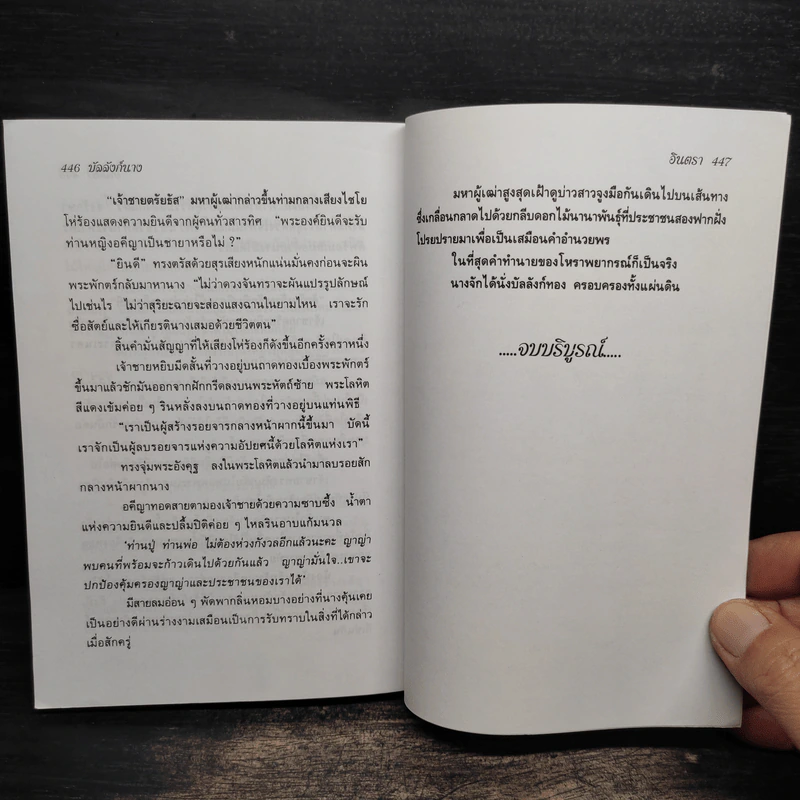 446 บัลลังก์นาง
"เจ้าชายตรัยธัส" มหาผู้เฒ่ากล่าวขึ้นท่ามกลางเสียงไชโย
โห่ร้องแสดงความยินดีจากผู้คนทั่วสารทิศ "พระองค์ยินดีจะรับ
ท่านหญิงอคีญาเป็นชายาหรือไม่ ?"
"ยินดี" ทรงตรัสด้วยสุรเสียงหนักแน่นมั่นคงก่อนจะผิน
พระพักตร์กลับมาหานาง "ไม่ว่าดวงจันทราจะผันแปรรูปลักษณ์
ไปเช่นไร ไม่ว่าสุริยะฉายจะส่องแสงฉานในยามไหน เราจะรัก
ซื่อสัตย์และให้เกียรตินางเสมอด้วยชีวิตตน"
สิ้นคำมั่นสัญญาที่ให้เสียงโห่ร้องก็ดังขึ้นอีกครั้งคราหนึ่ง
เจ้าชายหยิบมีดสั้นที่วางอยู่บนถาดทองเบื้องพระพักตร์
ขึ้นมาแล้วชักมันออกจากฝักกรีดลงบนพระหัตถ์ซ้าย พระโลหิต
สีแดงเข้มค่อย ๆ รินหลั่งลงบนถาดทองที่วางอยู่บนแท่นพิธี
"เราเป็นผู้สร้างรอยจารกลางหน้าผากนี้ขึ้นมา บัดนี้
เราจักเป็นผู้ลบรอยจารแห่งความอัปยศนี้ด้วยโลหิตแห่งเรา"
ทรงจุ่มพระอังคุฐ ลงในพระโลหิตแล้วนำมาลบรอยสัก
กลางหน้าผากนาง
อคีญาทอดสายตามองเจ้าชายด้วยความซาบซึ้ง น้ำตา
แห่งความยินดีและปลื้มปิติค่อย ๆ ไหลรินอาบแก้มนวล
'ท่านปู่ ท่านพ่อ ไม่ต้องห่วงกังวลอีกแล้วนะคะ ญาญ่า
พบคนที่พร้อมจะก้าวเดินไปด้วยกันแล้ว ญาญ่ามั่นใจ..เขาจะ
ปกป้องคุ้มครองญาญ่าและประชาชนของเราได้'
มีสายลมอ่อน ๆ พัดพากลิ่นหอมบางอย่างที่นางคุ้นเคย
เป็นอย่างดีผ่านร่างงามเสมือนเป็นการรับทราบในสิ่งที่ได้กล่าว
เมื่อสักครู่
อินตรา 447
มหาผู้เฒ่าสูงสุดเฝ้าดูบ่าวสาวจูงมือกันเดินไปบนเส้นทาง
ซึ่งเกลื่อนกลาดไปด้วยกลีบดอกไม้นานาพันธุ์ที่ประชาชนสองฟากฝั่ง
โปรยปรายมาเพื่อเป็นเสมือนคำอำนวยพร
ในที่สุดคำทำนายของโหราพยากรณ์ก็เป็นจริง
นางจักได้นั่งบัลลังก์ทอง ครอบครองทั้งแผ่นดิน
.....จบบริบูรณ์.....